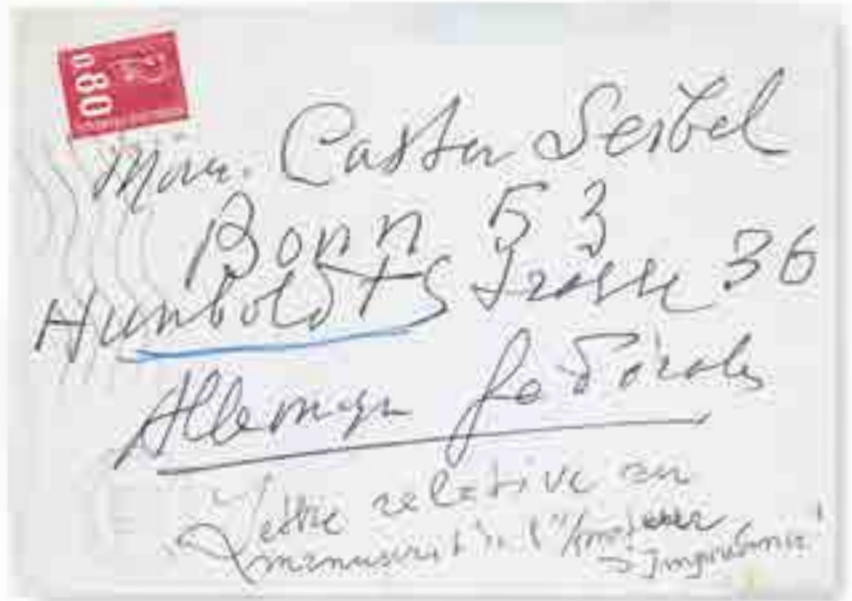 0.80
Mon. Castor Seibel
Bonn 53
Humboldts Trasse 36
Allemagn fédérale
Lettre relative au
manuscrit